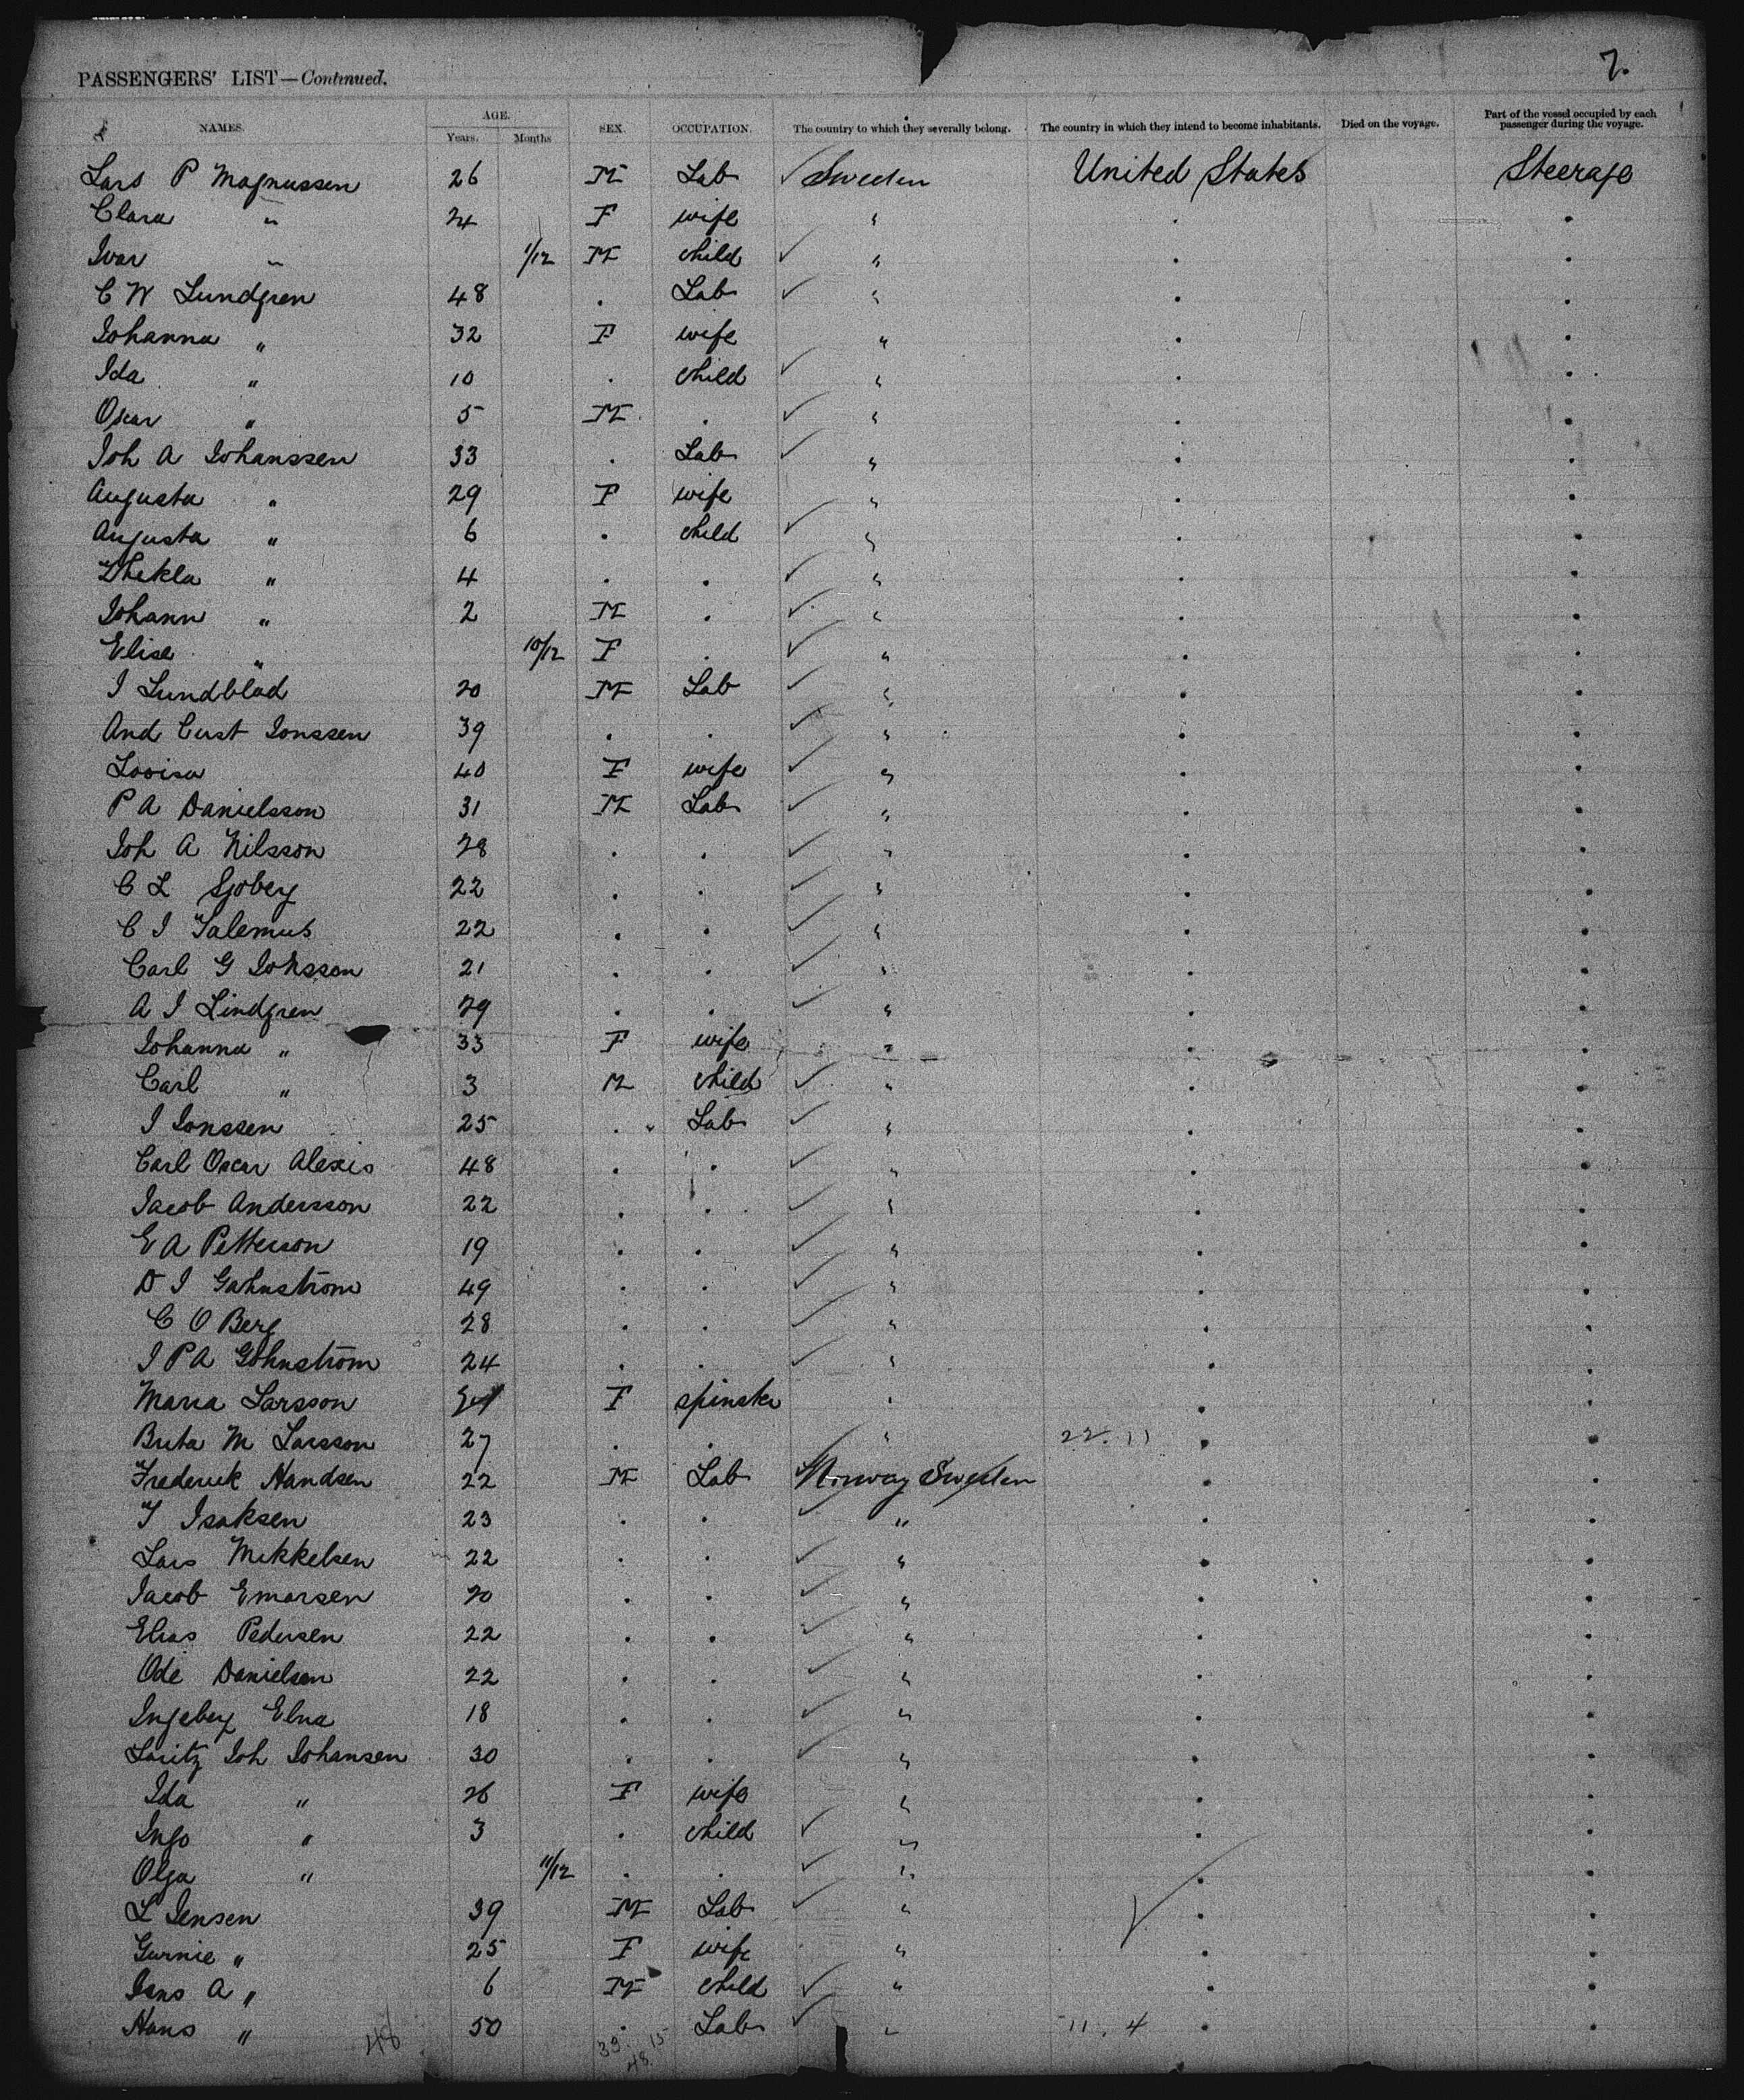 PASSENGERS' LIST—Continued. 7.
NAMES. AGE. Years. Months SEX. OCCUPATION. The country to which they severally belong. The country in which they intend to become inhabitants. Died on the voyage. Part of the vessel occupied by each passenger during the voyage.
Lars P Magnussen 26 M Lab ✓ Sweden United States Steerage
Clara " 24 F wife " . .
Ivar " 1/12 M child ✓ " . .
C W Lundgren 48 . Lab ✓ " . .
Johanna " 32 F wife " . .
Ida " 10 . child ✓ " . .
Oscar " 5 M . ✓ " . .
Joh A Johanssen 33 . Lab ✓ " . .
Augusta " 29 F wife " . .
Augusta " 6 . child ✓ " . .
Thekla " 4 . . ✓ " . .
Johann " 2 M . ✓ " . .
Elise " 10/12 F . ✓ " . .
J Lundblad 20 M Lab ✓ " . .
And Cust Jonssen 39 . . ✓ " . .
Lovisa 40 F wife ✓ " . .
P A Danielsson 31 M Lab ✓ " . .
Joh A Nilsson 28 . . ✓ " . .
C L Sjoberg 22 . . ✓ " . .
C J Talemus 22 . . ✓ " . .
Carl G Johsson 21 . . ✓ " . .
A J Lindgren 29 . . ✓ " . .
Johanna " 33 F wife " . .
Carl " 3 M child ✓ " . .
J Jonssen 25 . " Lab ✓ " . .
Carl Oscar Alexis 48 . . ✓ " . .
Jacob Andersson 22 . . ✓ " . .
E A Petterson 19 . . ✓ " . .
D J Gahnstrom 49 . . ✓ " . .
C O Berg 28 . . ✓ " . .
J P A Gohnstrom 24 . . ✓ " . .
Maria Larsson F spinster " . .
Brita M Larsson 27 . . " 22. 11 . .
Frederick Handsen 22 M Lab ✓ Norway Sweden . .
T Isaksen 23 . . ✓ " . .
Lars Mikkelsen 22 . . ✓ " . .
Jacob Emarsen 20 . . ✓ " . .
Elias Pedersen 22 . . ✓ " . .
Ode Danielsen 22 . . ✓ " . .
Ingeberg Elna 18 . . ✓ " . .
Lauritz Joh Johansen 30 . . ✓ " . .
Ida " 26 F wife " . .
Inga " 3 . child ✓ " . .
Olga " 11/12 . . ✓ " . .
L Jensen 39 M Lab ✓ " ✓ . .
Gurnie " 25 F wife " . .
Jens A " 6 M child ✓ " . .
Hans " 50 . Lab ✓ " 11. 4 . .
48 33 15
48